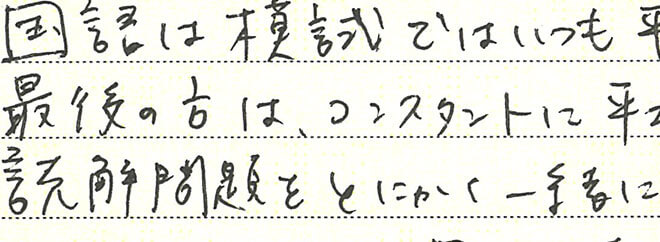 国語は模試ではいつも平
最後の方は、コンスタントに平
読解問題をとにかく一緒に